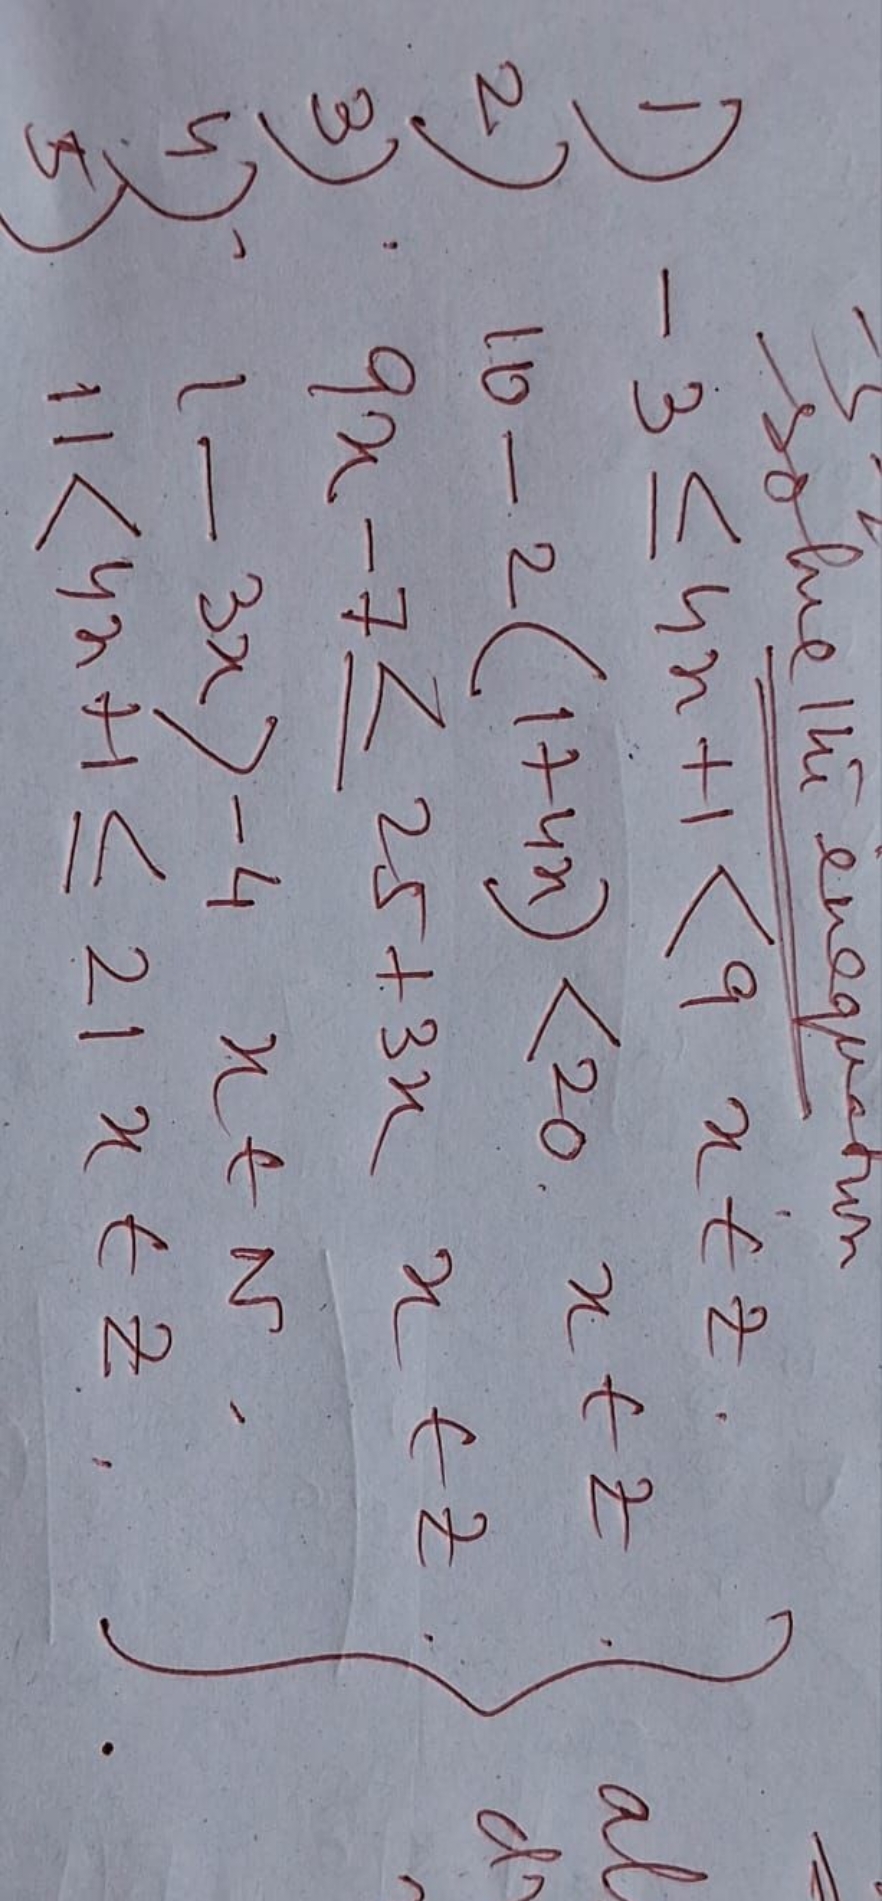 Solve the inequation
1) -3 ≤ 4x + 1 < 9 x ∈ Z.
2) 10 - 2(1+4x) < 20. x ∈ Z.
3) 9x - 7 ≤ 25 + 3x x ∈ Z.
4) 1 - 3x > -4 x ∈ N.
5) 11 < 4x + 1 ≤ 21 x ∈ Z.